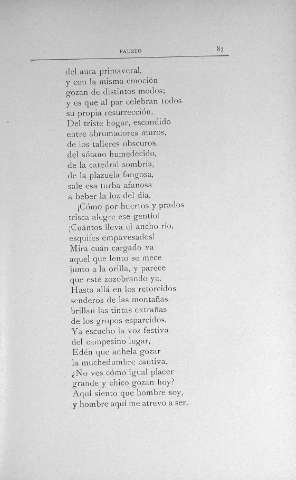 FAUSTO 83
del aura primaveral,
y con la misma emoción
gozan de distintos modos;
y es que al par celebran todos
su propia resurrección.
Del triste hogar, escondido
entre abrumadores muros,
de los talleres obscuros,
del sótano humedecido,
de la catedral sombría,
de la plazuela fangosa,
sale esa turba afanosa
a beber la luz del día.
¡Cómo por huertos y prados
trisca alegre ese gentío!
¡Cuántos lleva el ancho río,
esquifes empavesados!
Mira cuán cargado va
aquel que lento se mece
junto a la orilla, y parece
que esté zozobrando ya.
Hasta allá en los retorcidos
senderos de las montañas
brillan las tintas extrañas
de los grupos esparcidos.
Ya escucho la voz festiva
del campesino lugar,
Edén que anhela gozar
la muchedumbre cautiva.
¿No ves cómo igual placer
grande y chico gozan hoy?
Aquí siento que hombre soy,
y hombre aquí me atrevo a ser.